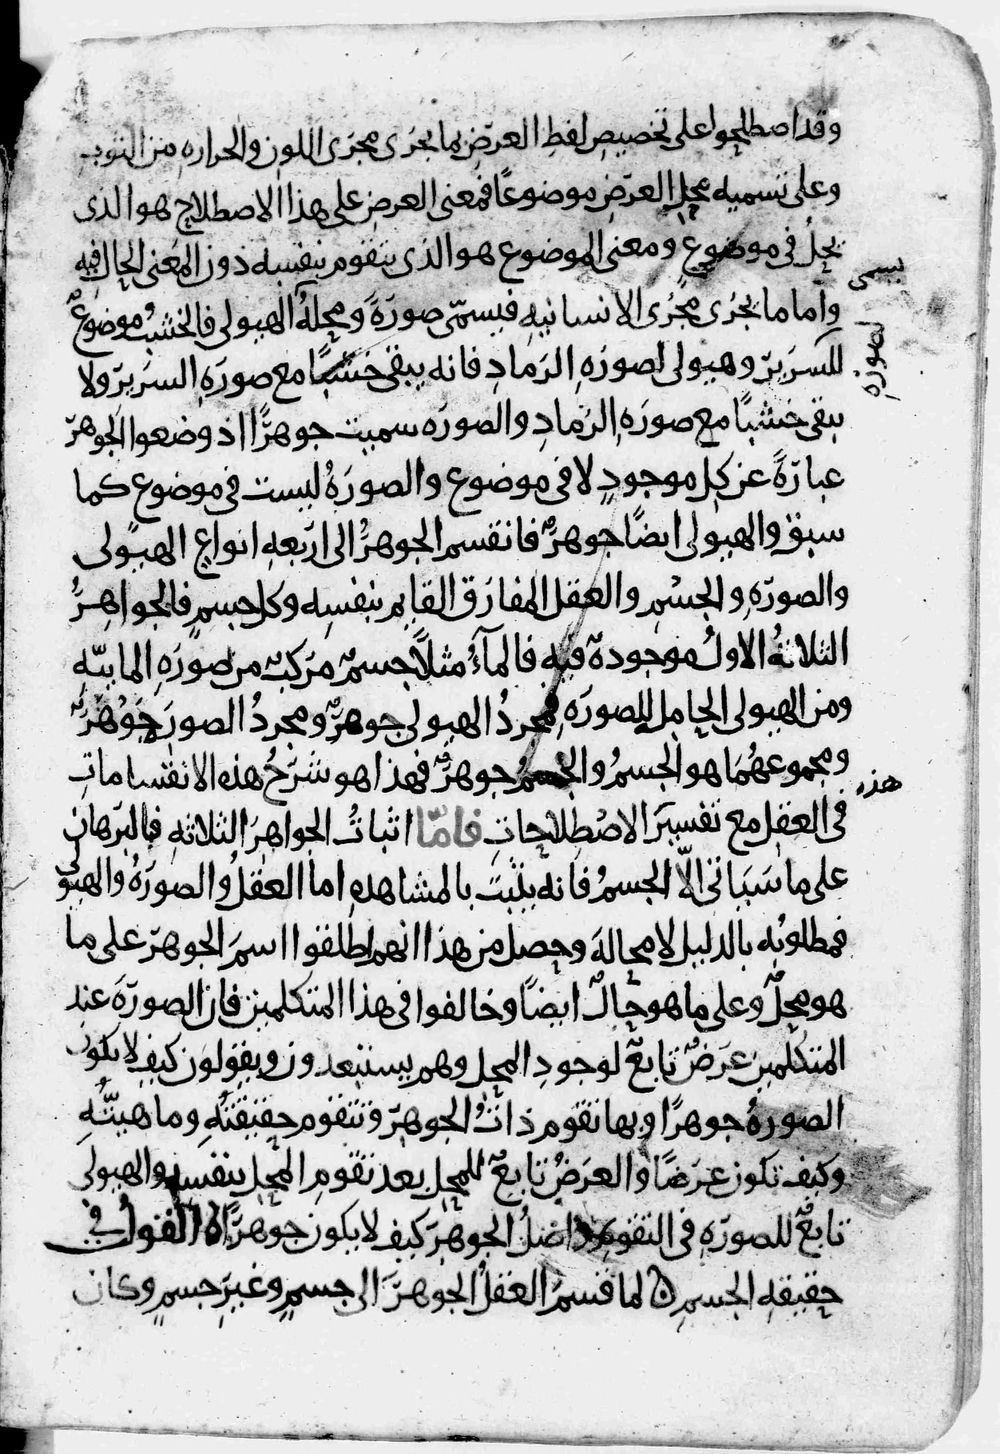 وقد اصطلحوا على تخصيص لفظ العرض بما يجرى مجرى اللون والحراره من الثوب
وعلى تسميه محل العرض موضوعًا فمعنى العرض على هذا الاصطلاح هو الذى
يحل فى موضوع ومعنى الموضوع هو الذى يتقوم بنفسه دون المعنى الحال فيه
يسمى
واما ما يجرى مجرى الانسانيه فيسمّى صورةً ومحله الهيولى فالخشب موضوعٌ
لصوره
للسرير وهيولى لصوره الرماد فانه يبقى خشبًا مع صوره السرير ولا
يبقى خشبًا مع صوره الرماد والصوره سميت جوهرًا اذ وضعوا الجوهر
عبارةً عن كل موجودٍ لا فى موضوع والصورهُ ليست فى موضوع كما
سبق والهيولى ايضًا جوهرٌ فانقسم الجوهرُ الى اربعه انواع الهيولى
والصوره والجسم والعقل المفارق القايم بنفسه وكل جسمٍ فالجواهرُ
الثلاثهُ الاولُ موجودة فيه فالمآءُ مثلًا جسمٌ مركبٌ من صوره المايّه
ومن الهيولى الحامل للصوره فمجردُ الهيولى جوهرٌ ومجردُ الصور جَوْهَرٌ
ومجموعهُما هو الجسمُ والجسمُ جوهرٌ فهذا هو شرحُ هذه الانقسامات
هذه
فى العقل مع تفسير الاصْطِلاحاتِ فامّا اثباتُ الجواهر الثلاثه فبالبرهان
على ما سَيَاتى الّا الجسمُ فانه يثبت بالمشاهده اما العقلُ والصورهُ والهيولى
فمطلوبُه بالدليل لا محاله وحصل من هذا انهم اطلقوا اسمَ الجوهر على ما
هو محلٌ وعلى ما هو حالٌ ايضًا وخالفوا فى هذا المتكلمين فان الصورة عند
المتكلمين عرضٌ تابعٌ لوجودِ المحل وهم يستبعدون ويقولون كيف لا يكون
الصورهُ جوهرًا وبها تقوم ذاتُ الجوهر وتتقوم حقيقتُه وماهيتُهِ
وكيف تكون عرضًا والعرضُ تابعٌ للمحل بعد تقوم المحل بنفسه والهيولى
تابعٌ للصوره فى التقوم واصلُ الجوهر كيف لا يكون جوهرًا القول فى
حقيقه الجسم لما قسم العقلُ الجوهر الى جسمٍ وغير جسمٍ وكان